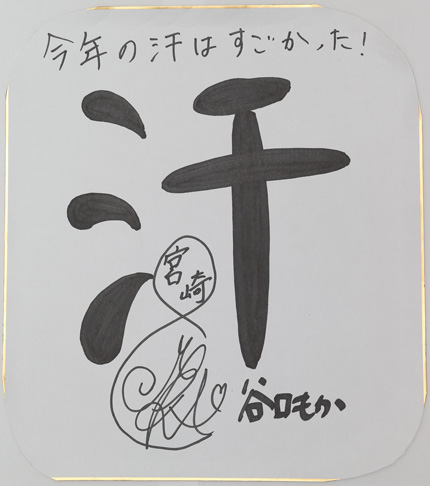 今年の汗はすごかった!
汗
宮崎
谷口もか